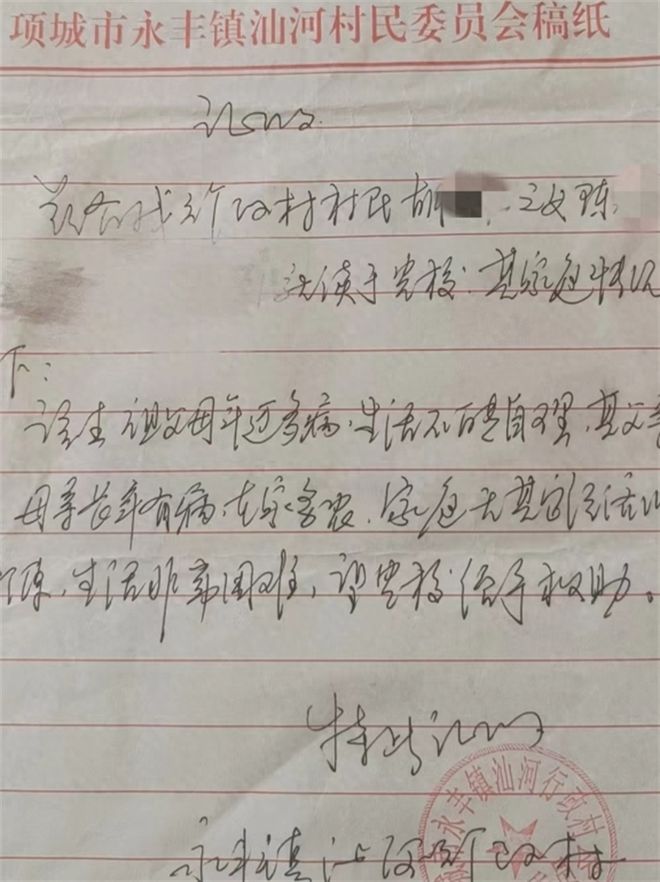 项城市永丰镇汕河村民委员会稿纸
证明
兹有我行政村村民胡 之女 陈
就读于贵校．其家庭情况
下：
该生祖父母年迈多病．生活不能自理，其父亲
母亲长年有病，在家务农．家庭无其它经济
生活非常困难，望贵校给予救助。
特此证明
永丰镇汕河行政村
永丰镇汕河行政村